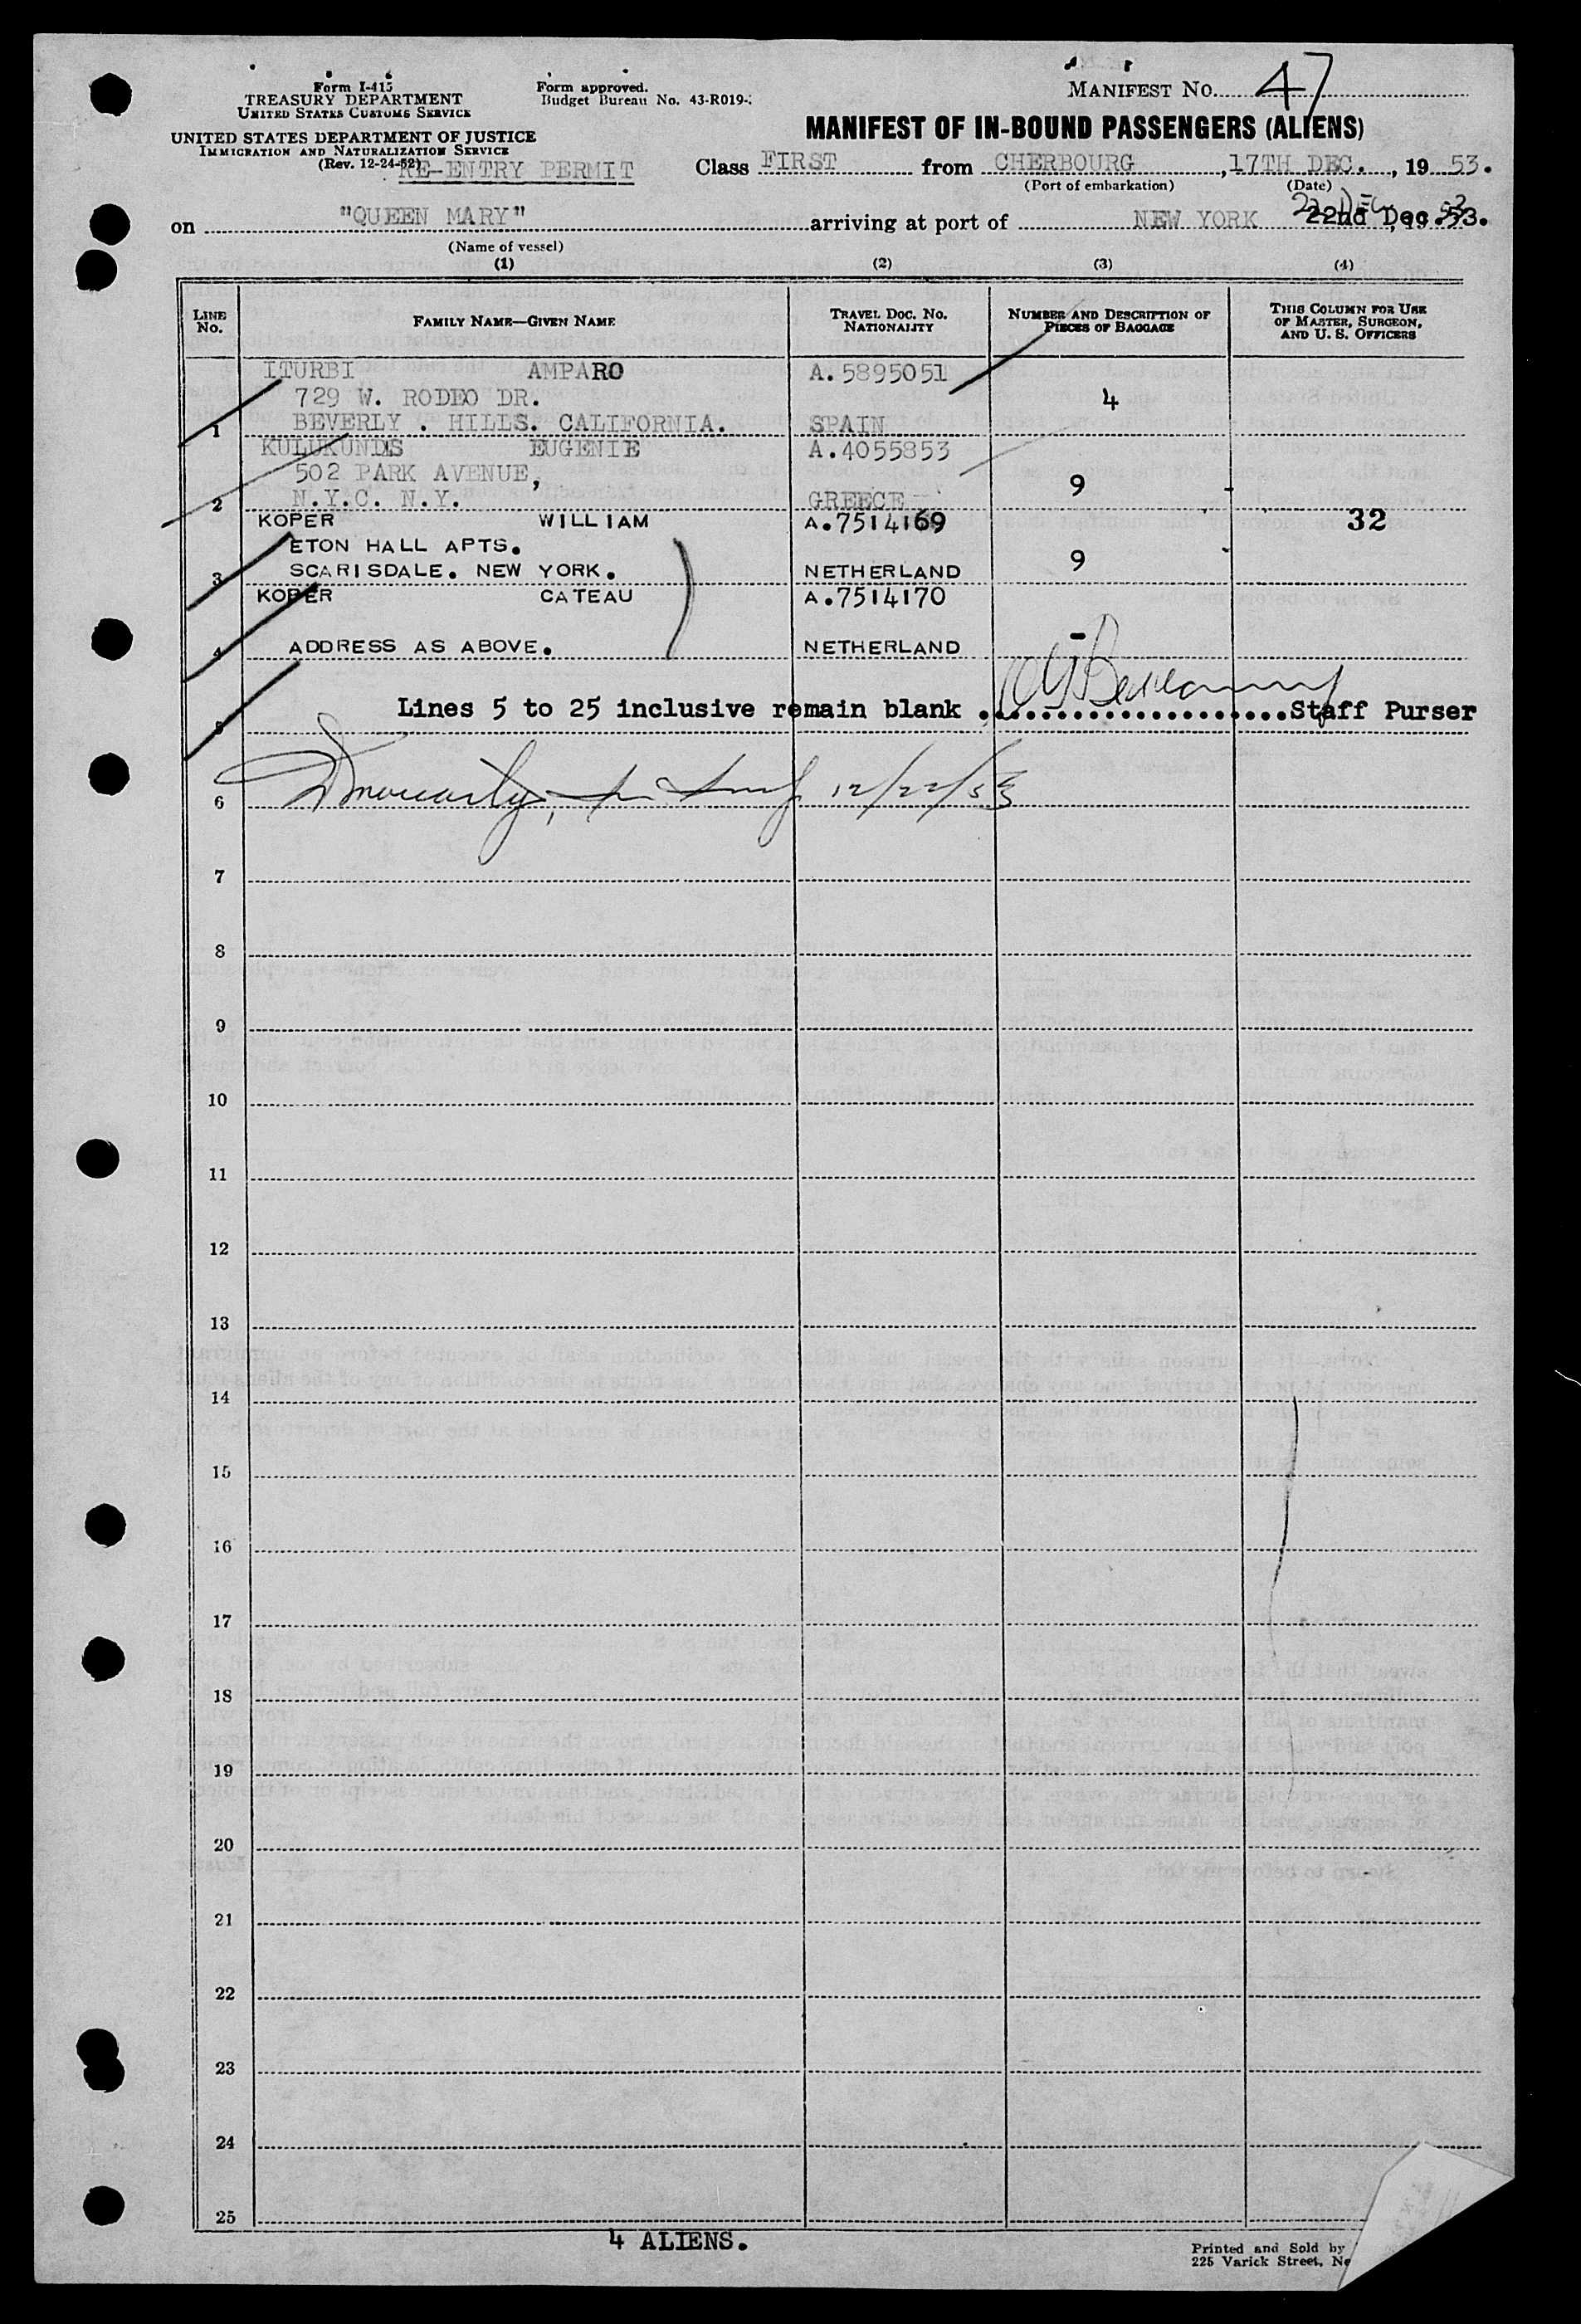 Form I-415
TREASURY DEPARTMENT
UNITED STATES CUSTOMS SERVICE
UNITED STATES DEPARTMENT OF JUSTICE
IMMIGRATION AND NATURALIZATION SERVICE
(Rev. 12-24-52)
RE-ENTRY PERMIT
Form approved.
Budget Bureau No. 43-R019-
MANIFEST NO. 47
MANIFEST OF IN-BOUND PASSENGERS (ALIENS)
Class FIRST from CHERBOURG, 17TH DEC., 19 53.
(Port of embarkation) (Date)
on "QUEEN MARY" arriving at port of NEW YORK 22nd Dec. 53.
(Name of vessel)
(1) (2) (3) (4)
LINE No. FAMILY NAME—GIVEN NAME TRAVEL DOC. NO. NATIONALITY NUMBER AND DESCRIPTION OF PIECES OF BAGGAGE THIS COLUMN FOR USE OF MASTER, SURGEON, AND U. S. OFFICERS
ITURBI AMPARO A.5895051
729 W. RODEO DR. 4
1 BEVERLY . HILLS. CALIFORNIA. SPAIN
KULUKUNDIS EUGENIE A.4055853
502 PARK AVENUE, 9
2 N.Y.C. N.Y. GREECE
KOPER WILLIAM A.7514169 32
ETON HALL APTS. 9
3 SCARISDALE. NEW YORK. NETHERLAND
KOPER CATEAU A.7514170
4 ADDRESS AS ABOVE. NETHERLAND -
5 Lines 5 to 25 inclusive remain blank ....................Staff Purser
6 12/22/53
7
8
9
10
11
12
13
14
15
16
17
18
19
20
21
22
23
24
25
4 ALIENS.
Printed and Sold by
225 Varick Street, Ne